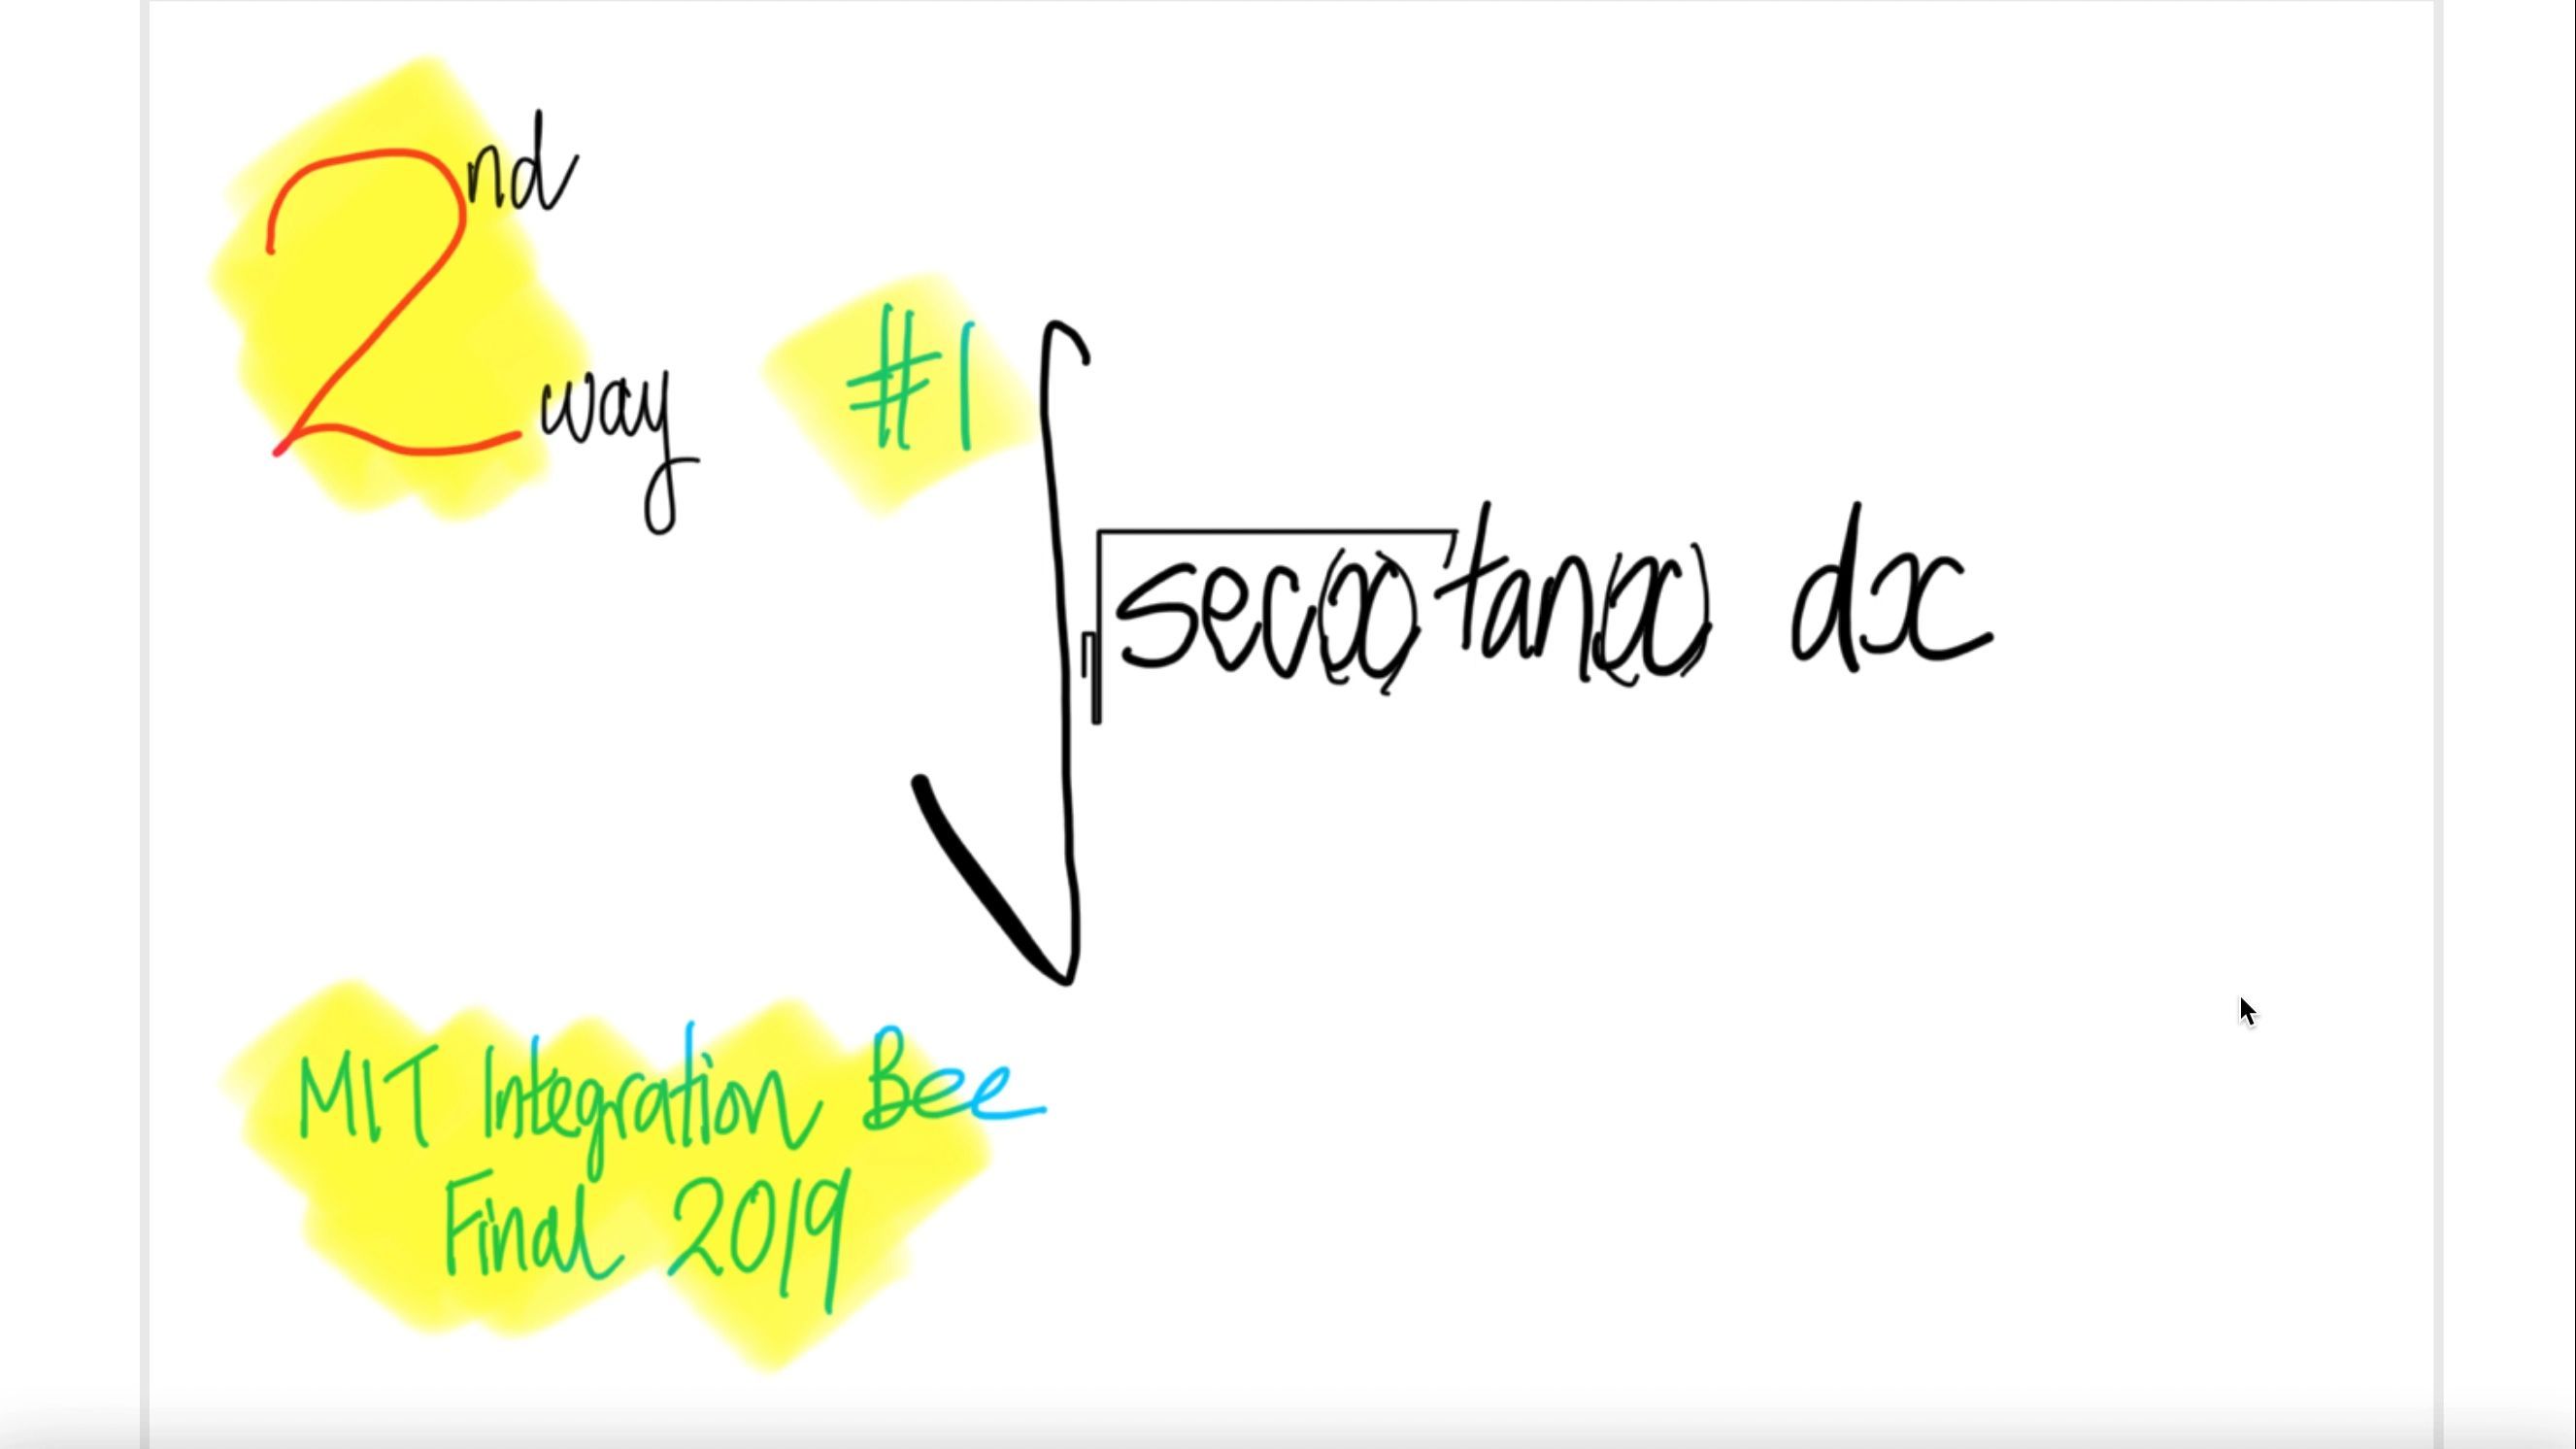 2nd
way
#1 ∫ √sec(x) tan(x) dx
MIT Integration Bee
Final 2019